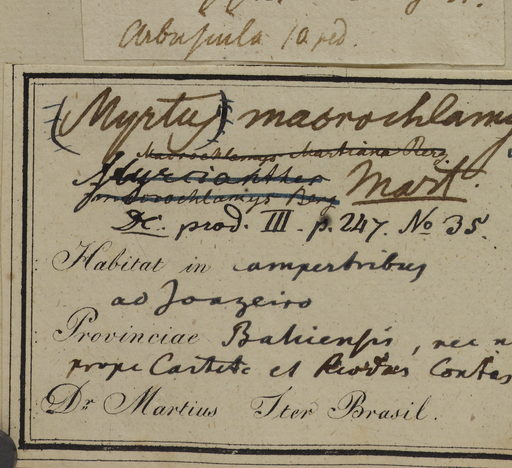 Arbuscula 10 ped.
(Myrtus) macrochlamy
Macrochlamys Martiana Berg
Myrcianthes Mart.
macrochlamys Berg
DC. prod. III. p. 247. No 35.
Habitat in campestribus
ad Joazeiro
Provinciae Bahiensis, nec n
prope Caeteté et Rio das Contas
Dr Martius Iter Brasil.